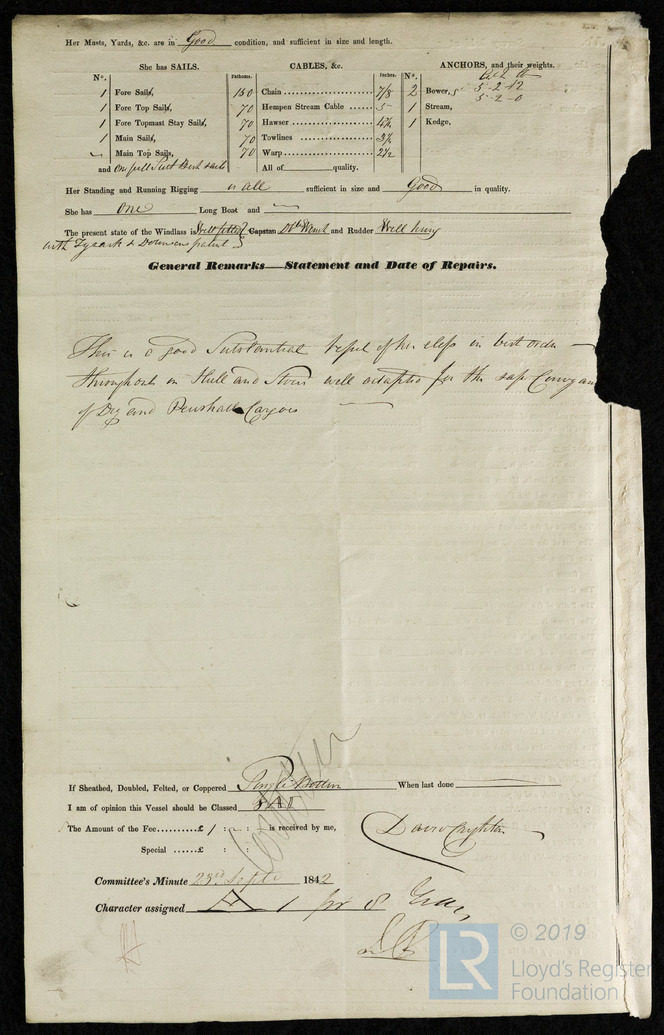 Her Masts, Yards, &c. are in Good condition, and sufficient in size and length.
She has SAILS. CABLES, &c. ANCHORS, and their weights.
N°. Fathoms. Inches. N°.
1 Fore Sails, 150 Chain 7/8 2 Bower, 5-2-12
1 Fore Top Sails, 70 Hempen Stream Cable 5 1 Stream, 5-2-0
1 Fore Topmast Stay Sails, 70 Hawser 4½ 1 Kedge,
1 Main Sails, 70 Towlines 3½
Main Top Sails, 70 Warp 2½
and one full Suit Best sails All of quality.
Her Standing and Running Rigging is all sufficient in size and Good in quality.
She has one Long Boat and
The present state of the Windlass is Well fitted Capstan and Rudder Well hung
with Tysack & patent
General Remarks—Statement and Date of Repairs.
This is a good Substantial Vessel of her class in best order
throughout in Hull and Stores well adapted for the safe Conveyan
of Dry and Perishable Cargoes
If Sheathed, Doubled, Felted, or Coppered Single Bottom When last done
I am of opinion this Vessel should be Classed
The Amount of the Fee..........£ 1 : : is received by me,
Special ......£ : :
Committee's Minute 23rd Septr 1842
Character assigned A 1 for 8 Years
LR © 2019
Lloyd's Register
Foundation